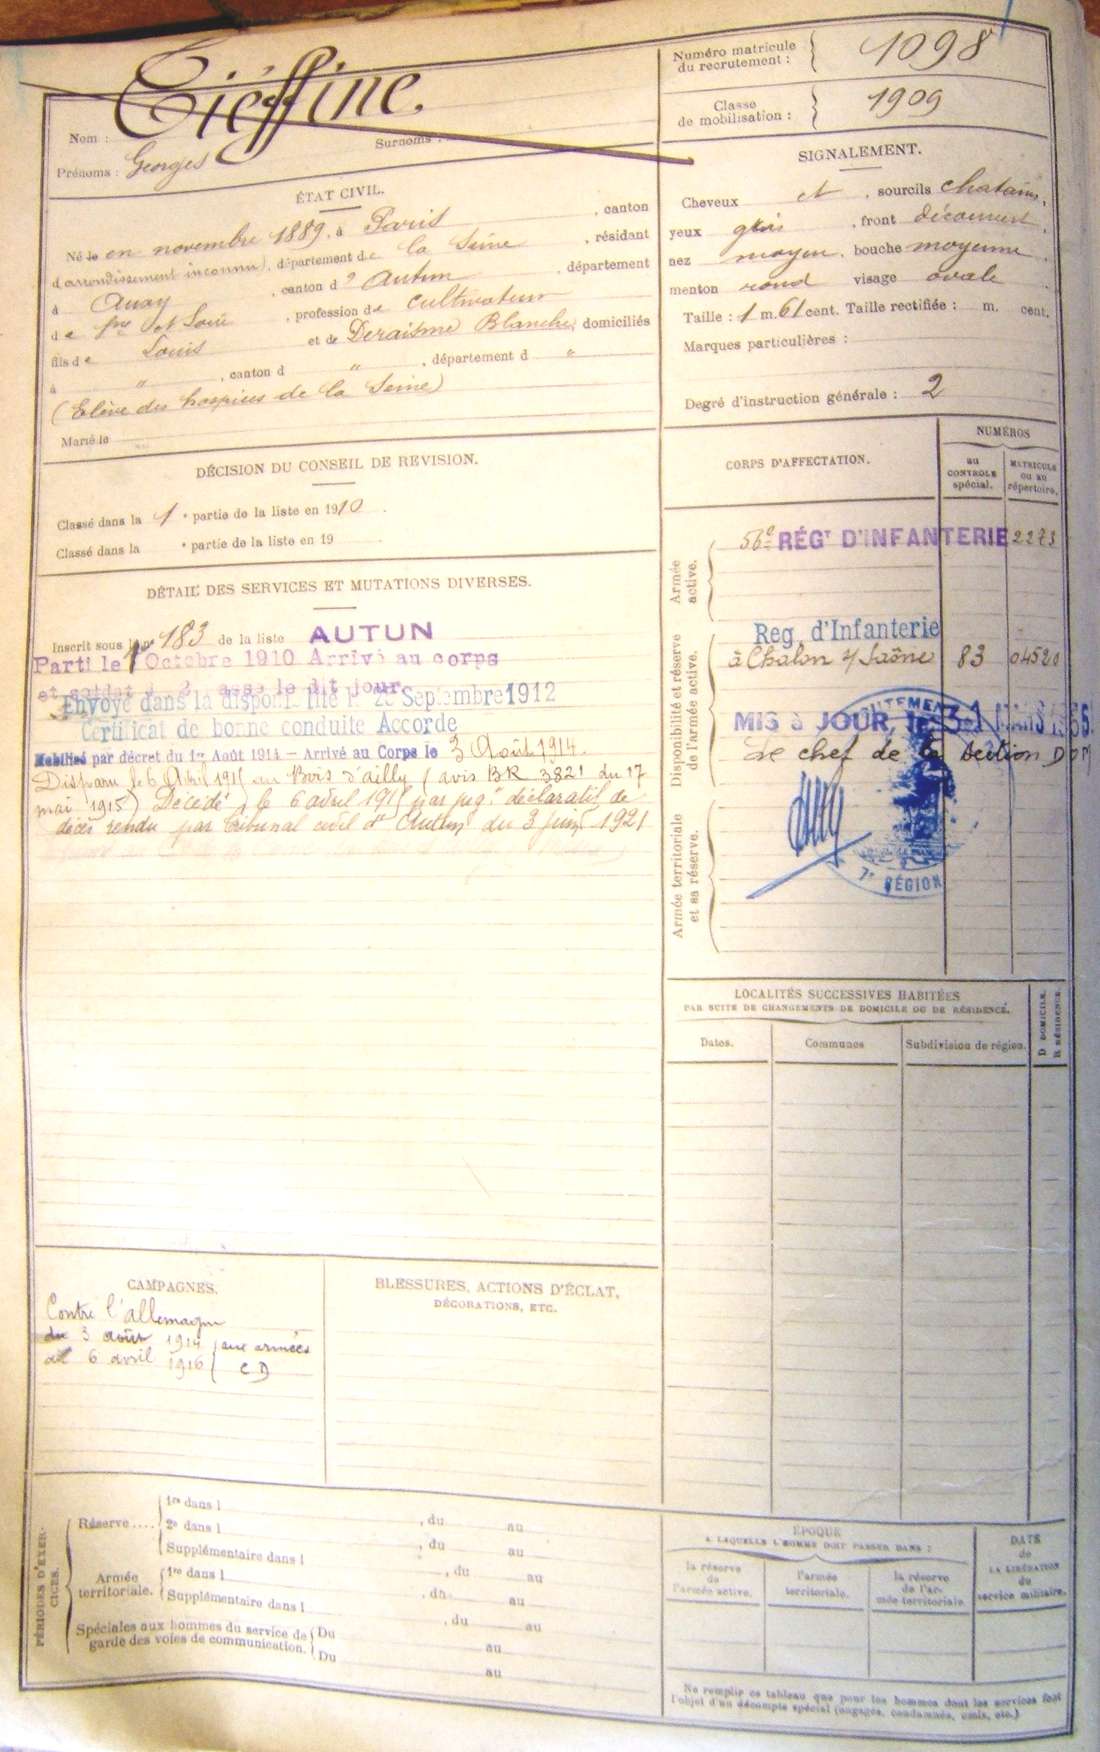 Nom : Tiéffine.
Surnoms :
Prénoms : Georges
Numéro matricule du recrutement : 1098
Classe de mobilisation : 1909
ÉTAT CIVIL.
Né le en novembre 1889, à Paris, canton
d (arrondissement inconnu), département de la Seine, résidant
à Auxy, canton d'Autun, département
de Sne et Loire, profession de cultivateur
fils de Louis et de Deraisme Blanche, domiciliés
à ", canton d ", département d "
(Elève des hospices de la Seine)
Marié le
SIGNALEMENT.
Cheveux et, sourcils chatains,
yeux gris, front découvert,
nez moyen, bouche moyenne,
menton rond visage ovale
Taille : 1 m. 61 cent. Taille rectifiée : m. cent.
Marques particulières :
Degré d'instruction générale : 2
DÉCISION DU CONSEIL DE REVISION.
Classé dans la 1e partie de la liste en 1910.
Classé dans la e partie de la liste en 19
DÉTAIL DES SERVICES ET MUTATIONS DIVERSES.
Inscrit sous le no 183 de la liste AUTUN
Parti le 1 Octobre 1910 Arrivé au corps
et soldat d 2 asse le dit jour
Envoyé dans la disponibilité le 25 Septembre 1912
Certificat de bonne conduite Accordé
Mobilisé par décret du 1er Août 1914 — Arrivé au Corps le 3 Août 1914.
Disparu le 6 Avril 1915 au Bois d'ailly (avis BR 3821 du 17
mai 1915) Décédé le 6 avril 1915 par jugt déclaratif de
décès rendu par tribunal civil d'Autun du 3 juin 1921
CORPS D'AFFECTATION.
NUMÉROS
au CONTROLE spécial.
MATRICULE ou au répertoire.
Armée active.
56e RÉGT D'INFANTERIE 2273
Disponibilité et réserve de l'armée active.
Reg. d'Infanterie
à Chalon s/ Saône 83 04520
MIS à JOUR, le 31 MARS
Le chef de la Section
RECRUTEMENT
7e RÉGION
Armée territoriale et sa réserve.
LOCALITÉS SUCCESSIVES HABITÉES
PAR SUITE DE CHANGEMENTS DE DOMICILE OU DE RÉSIDENCE.
Dates.
Communes
Subdivision de région.
D DOMICILE.
R RÉSIDENCE.
CAMPAGNES.
Contre l'allemagne
du 3 août 1914 aux armées
al 6 avril 1916 C D
BLESSURES, ACTIONS D'ÉCLAT,
DÉCORATIONS, ETC.
PÉRIODES D'EXERCICES.
Réserve....
1re dans l , du au
2e dans l , du au
Supplémentaire dans l , du au
Armée territoriale.
1re dans l , du au
Supplémentaire dans l , du au
Spéciales aux hommes du service de garde des voies de communication.
Du au
Du au
ÉPOQUE
A LAQUELLE L'HOMME DOIT PASSER DANS :
la réserve de l'armée active.
l'armée territoriale.
la réserve de l'armée territoriale.
DATE de LA LIBÉRATION du service militaire.
Ne remplir ce tableau que pour les hommes dont les services font
l'objet d'un décompte spécial (engagés, condamnés, omis, etc.)